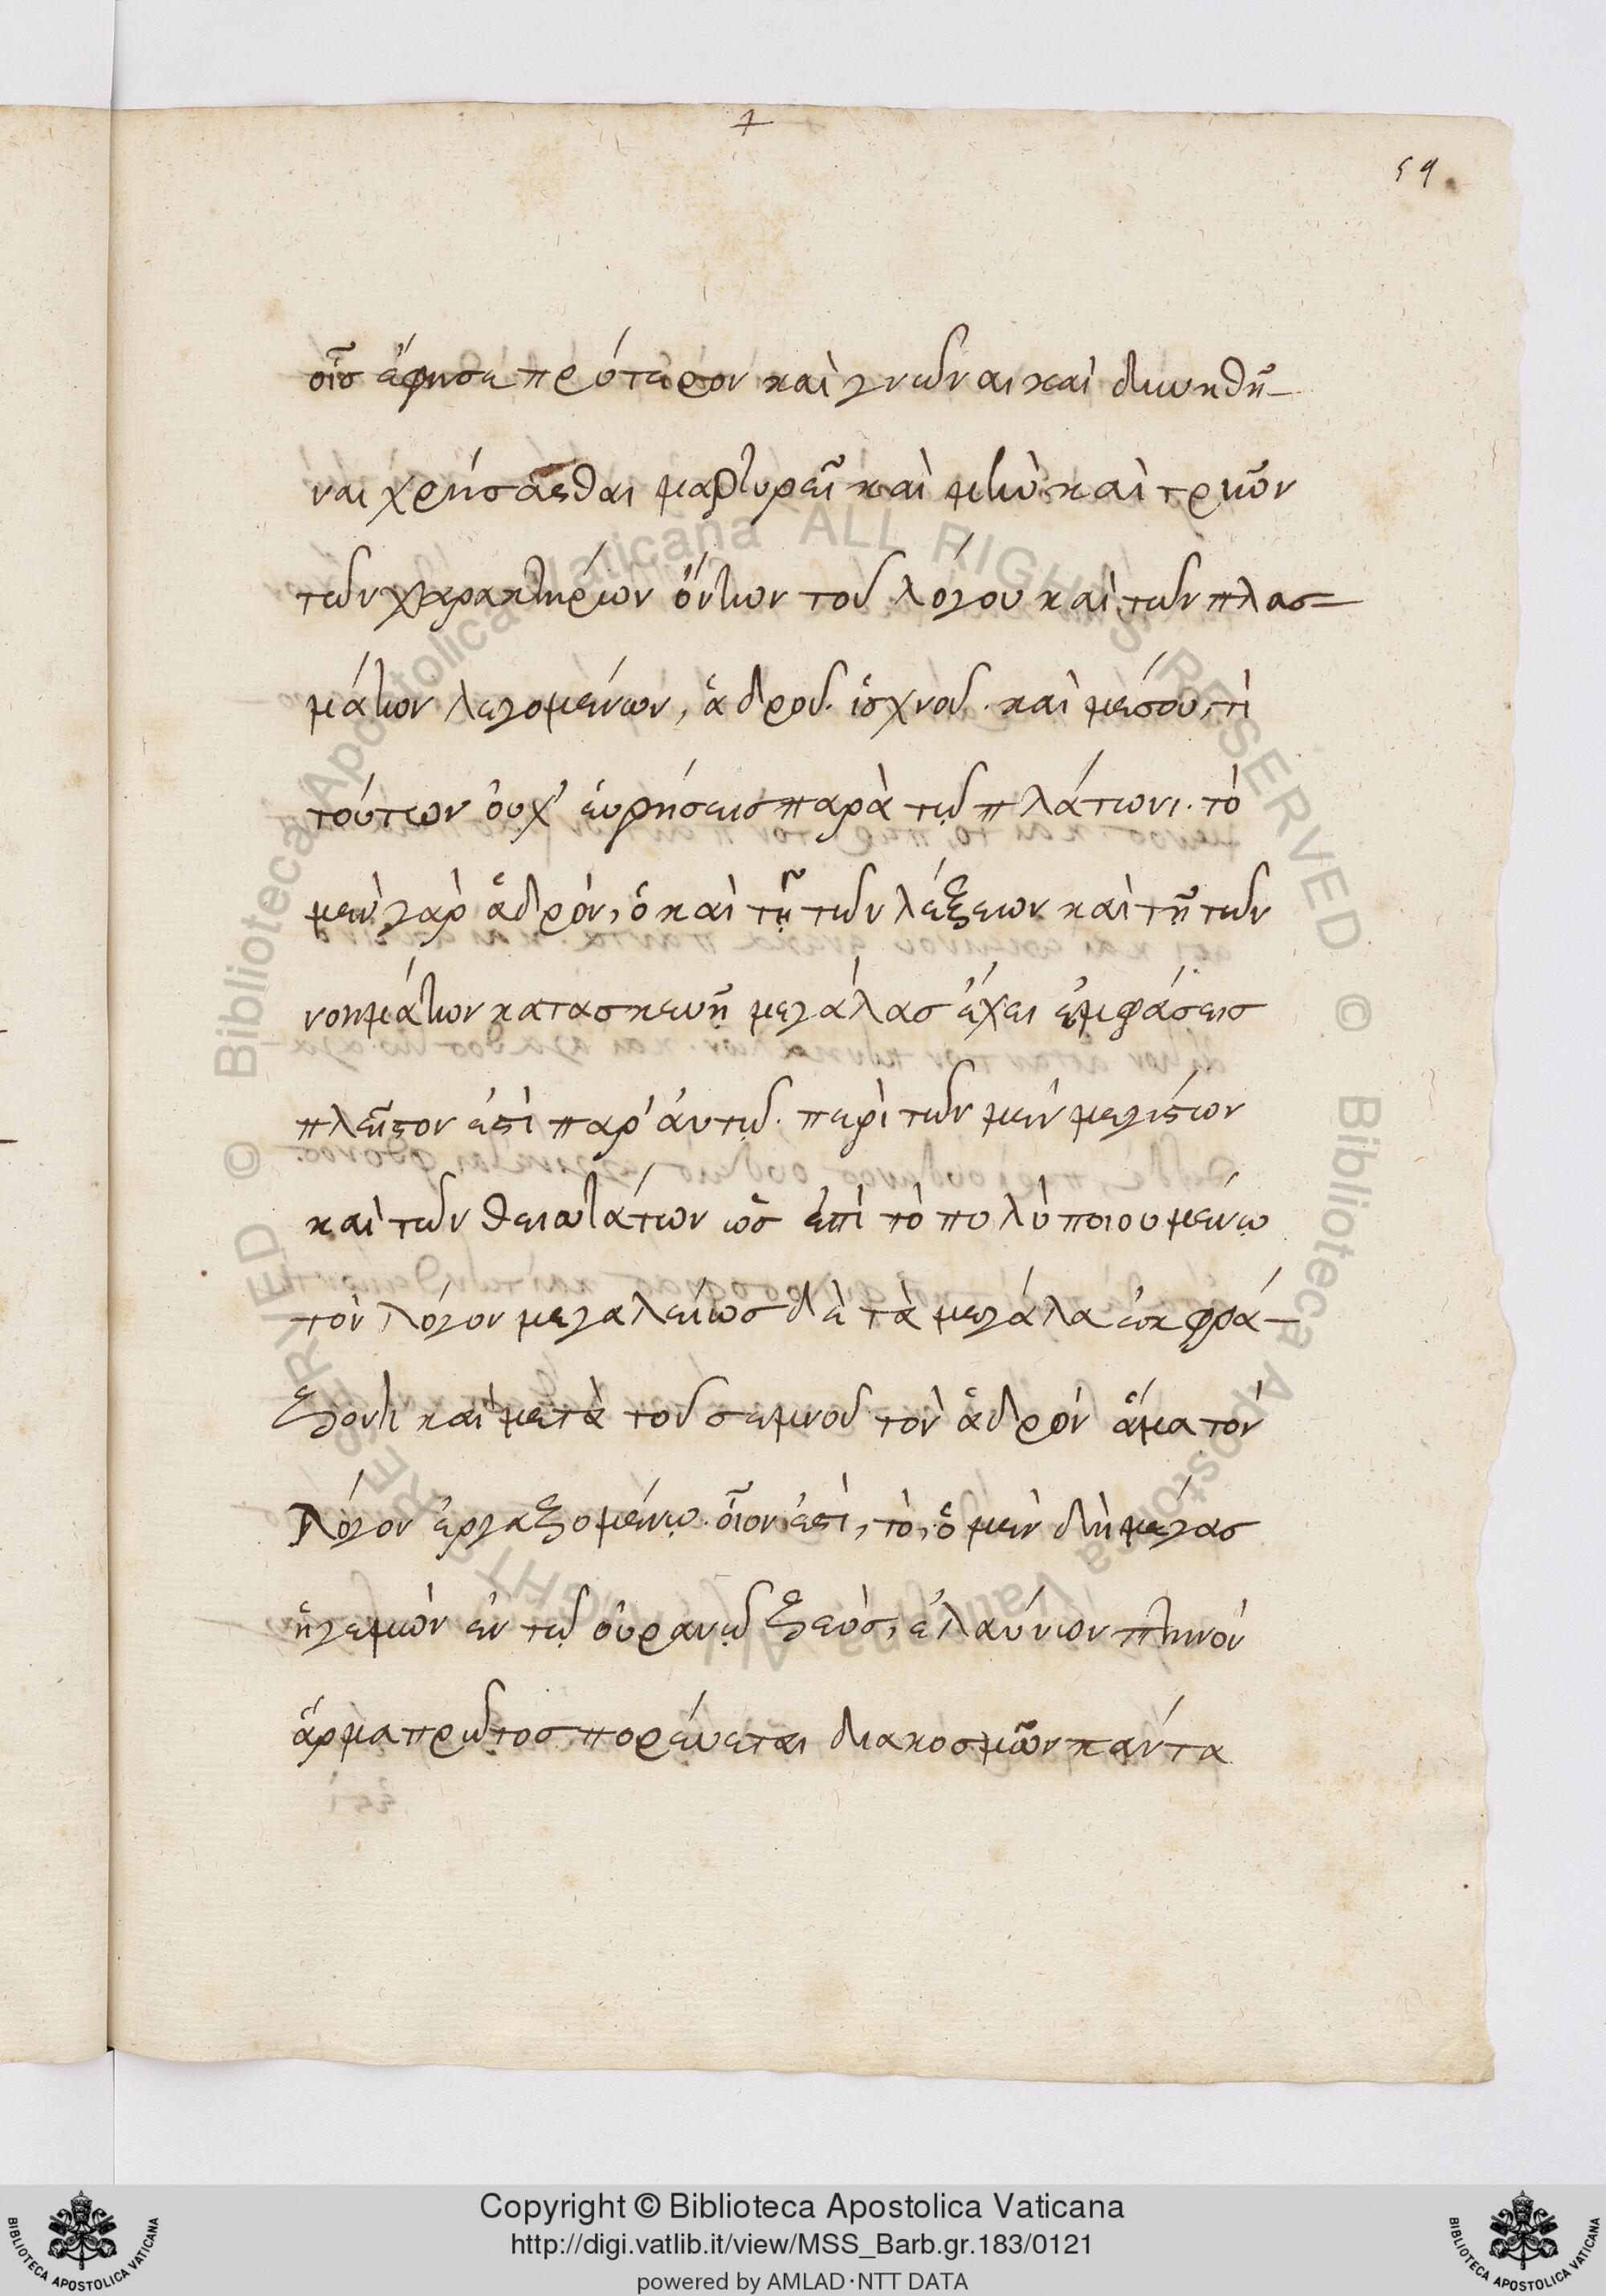 59
οἷς ἔφησε πρότερον καὶ γνῶναι καὶ διωκηθῆ-
ναι χρήσασθαι μαρτυρεῖ καὶ μὴν καὶ τριῶν
τῶν χαρακτήρων ὄντων τοῦ λόγου καὶ τῶν πλασ-
μάτων λεγομένων, ἁδροῦ. ἰσχνοῦ. καὶ μέσου, τί
τούτων οὐχ' εὑρήσεις παρὰ τῷ πλάτωνι. τὸ
μὲν γὰρ ἁδρὸν, ὃ καὶ τῇ τῶν λέξεων καὶ τῇ τῶν
νοημάτων κατασκευῇ μεγάλας ἔχει ἐμφάσεις
πλεῖστον ἐστὶ παρ' αὐτῷ. περὶ τῶν μὲν μεγίστων
καὶ τῶν θειωτάτων ὡς ἐπὶ τὸ πολὺ ποιουμένῳ
τὸν λόγον μεγαλείως δὲ τὰ μεγάλα ἐκφρά-
ζοντι καὶ μετὰ τοῦ σεμνοῦ τὸν ἁδρὸν ἅμα τὸν
λόγον ἐργαζομένῳ. οἷον ἐστὶ, τὸ, ὁ μὲν δὴ μέγας
ἡγεμὼν ἐν τῷ οὐρανῷ ζεὺς, ἐλαύνων πτηνὸν
ἅρμα πρῶτος πορεύεται διακοσμῶν πάντα
Copyright © Biblioteca Apostolica Vaticana
http://digi.vatlib.it/view/MSS_Barb.gr.183/0121
powered by AMLAD·NTT DATA
BIBLIOTECA APOSTOLICA VATICANA
BIBLIOTECA APOSTOLICA VATICANA